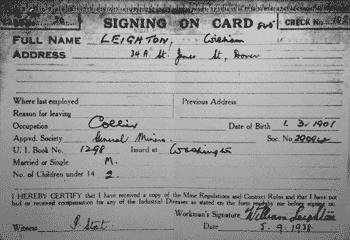 26 SIGNING ON CARD CHECK No.
FULL NAME LEIGHTON, William
ADDRESS 34A St. James St, Dover
Where last employed Previous Address
Reason for leaving
Occupation Collier Date of Birth 1. 3. 1901
Appvd. Society General Miners. Soc. No.
U. I. Book No. 1298 Issued at Washington
Married or Single M.
No. of Children under 14 2.
I HEREBY CERTIFY that I have received a copy of the Mine Regulations and Contract Rules and that I have not
had or received compensation for any of the Industrial Diseases as stated on the form
Workman's Signature William Leighton
Witness Date 5. 9. 1938